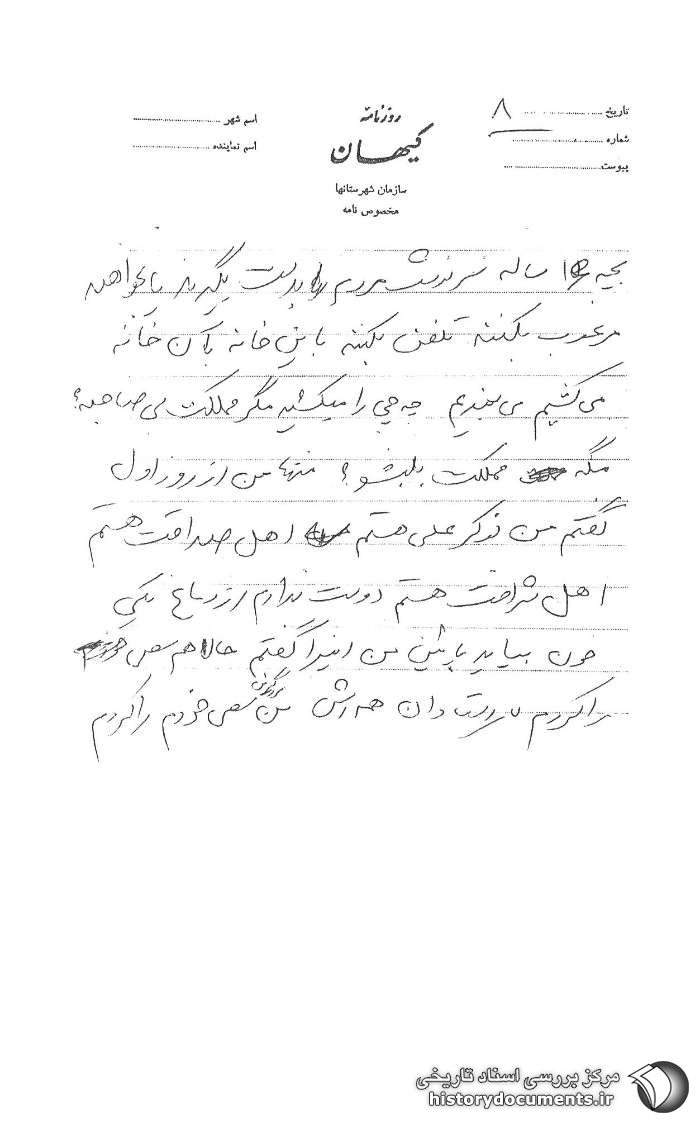 تاریخ ۸
شماره
پیوست
روزنامه
کیهان
سازمان شهرستانها
مخصوص نامه
اسم شهر
اسم نماینده
بچه ساله سرنوشت مردم را بدست بگیرند بخواهند
مرعوب بکنند تلفن بکنند باین خانه بآن خانه
می کشیم می بندیم چه چی را میکشید مگر مملکت بی صاحبه؟
مگه مملکت بلبشو؟ منتها من از روز اول
گفتم من نوکر علی هستم اهل صداقت هستم
اهل شرافت هستم دوست ندارم از دماغ یکی
خون بیاید پائین من اینرا گفتم حالا هم سعی خودم
را کردم من سعی خودم را کردم
مرکز بررسی اسناد تاریخی
historydocuments.ir